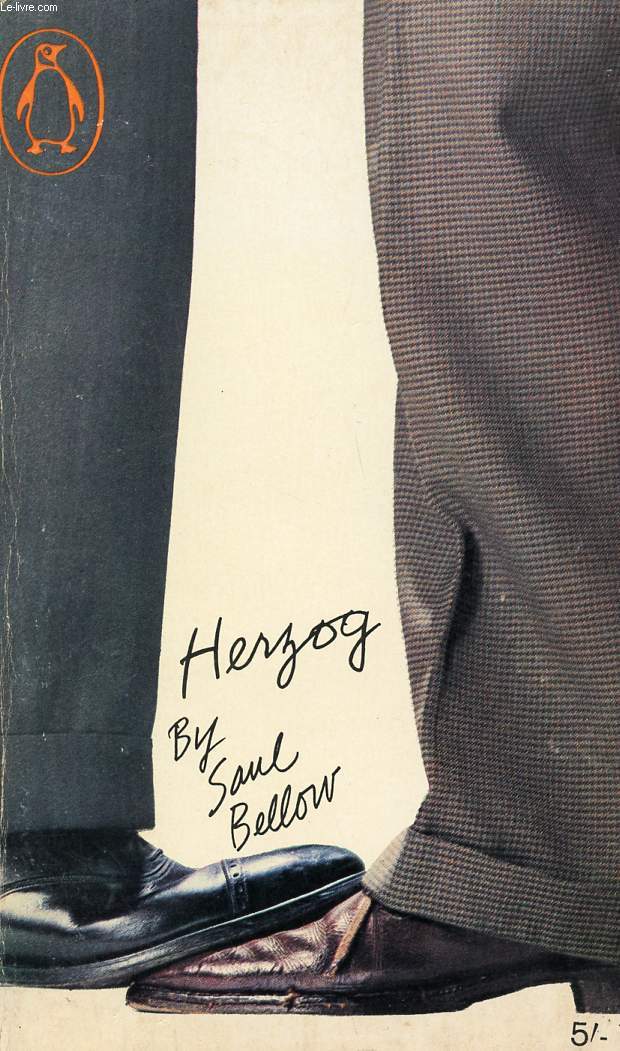 Le-livre.com
Herzog
By
Saul
Bellow
5/-